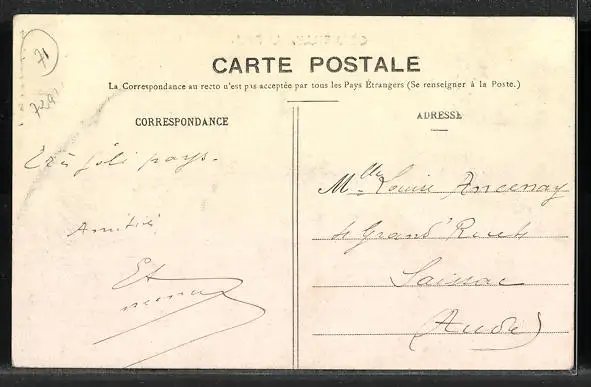 71
CARTE POSTALE
La Correspondance au recto n'est pas acceptée par tous les Pays Étrangers (Se renseigner à la Poste.)
CORRESPONDANCE
Très joli pays.
Amitiés
ADRESSE
Mlle Louise Ancenay
Grand' Rue
Saissac
(Aude)